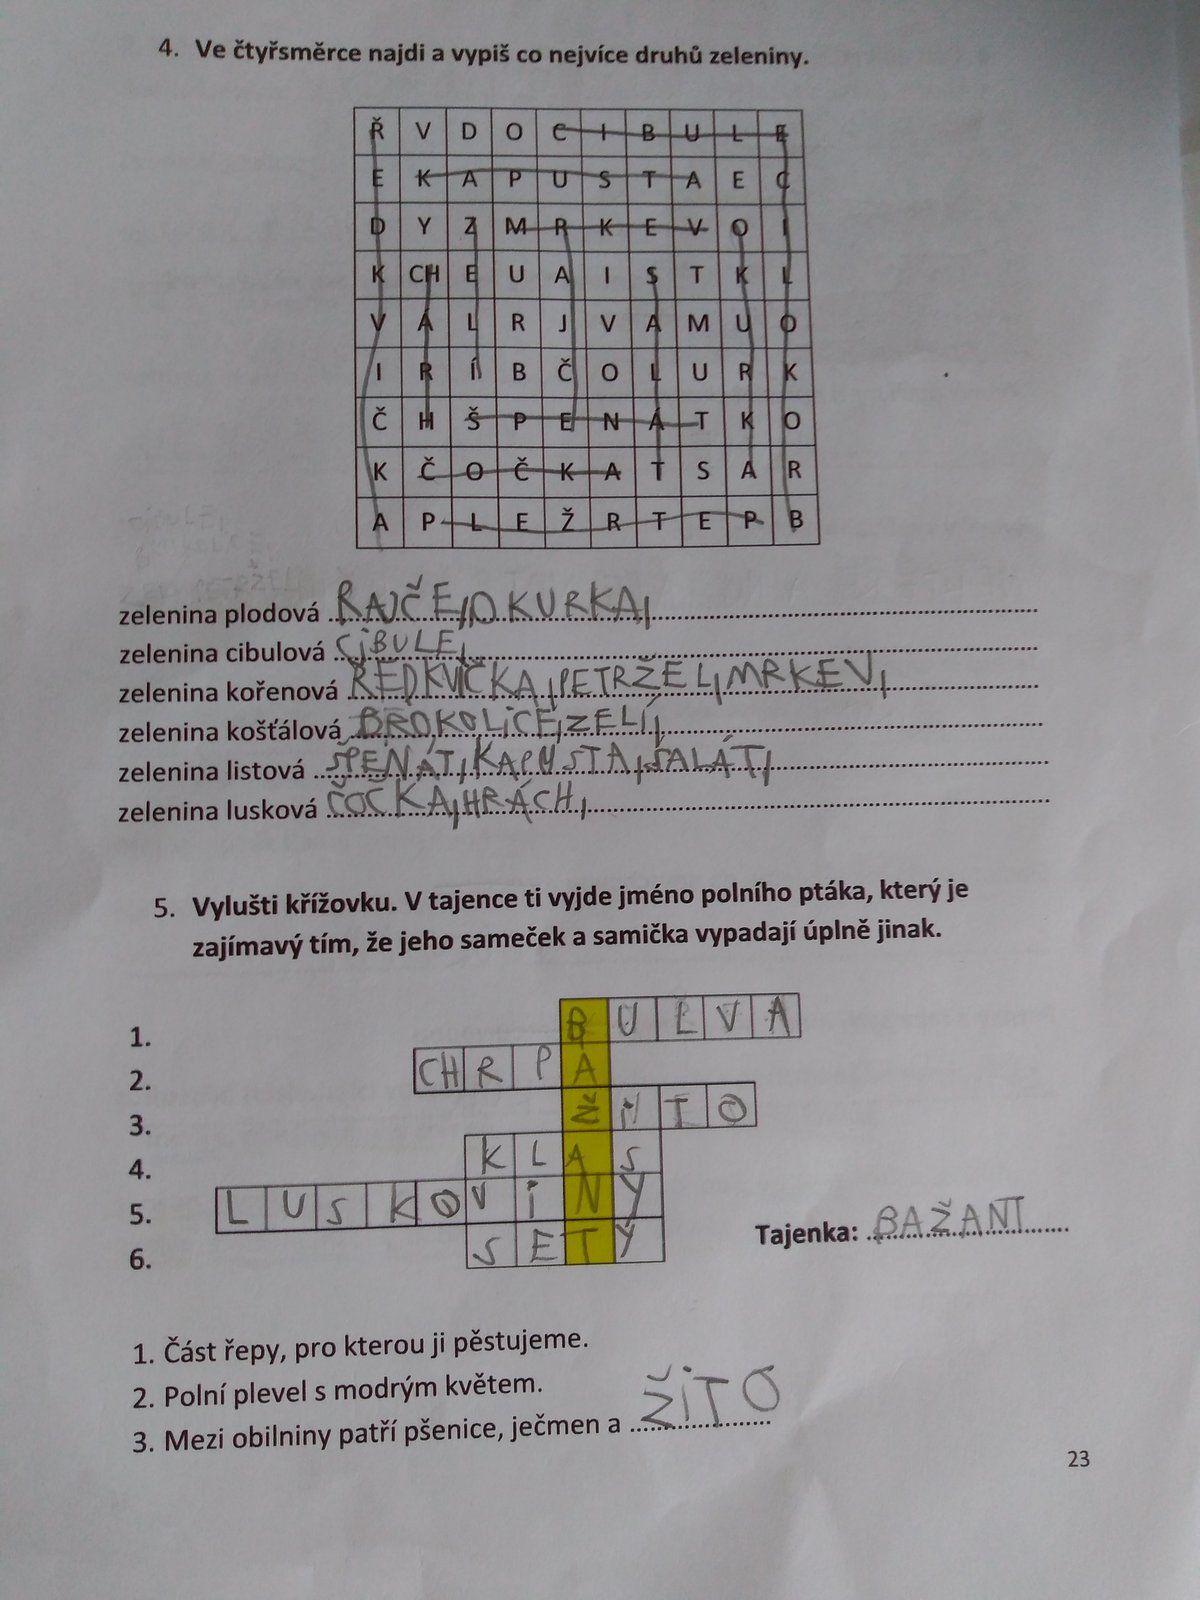 4. Ve čtyřsměrce najdi a vypiš co nejvíce druhů zeleniny.
Ř V D O C I B U L E
E K A P U S T A E C
D Y Z M R K E V O I
K CH E U A I S T K L
V Á L R J V A M U O
I R Í B Č O L U R K
Č H Š P E N Á T K O
K Č O Č K A T S A R
A P L E Ž R T E P B
zelenina plodová RAJČE, OKURKA,
zelenina cibulová CIBULE,
zelenina kořenová ŘEDKVIČKA, PETRŽEL, MRKEV,
zelenina košťálová BROKOLICE, ZELÍ,
zelenina listová ŠPENÁT, KAPUSTA, SALÁT,
zelenina lusková ČOČKA, HRÁCH,
5. Vylušti křížovku. V tajence ti vyjde jméno polního ptáka, který je
zajímavý tím, že jeho sameček a samička vypadají úplně jinak.
1. B U L V A
2. CH R P A
3. Ž I T O
4. K L A S
5. L U S K O V I N Y
6. S E T Ý
Tajenka: BAŽANT
1. Část řepy, pro kterou ji pěstujeme.
2. Polní plevel s modrým květem.
3. Mezi obilniny patří pšenice, ječmen a ŽITO
23